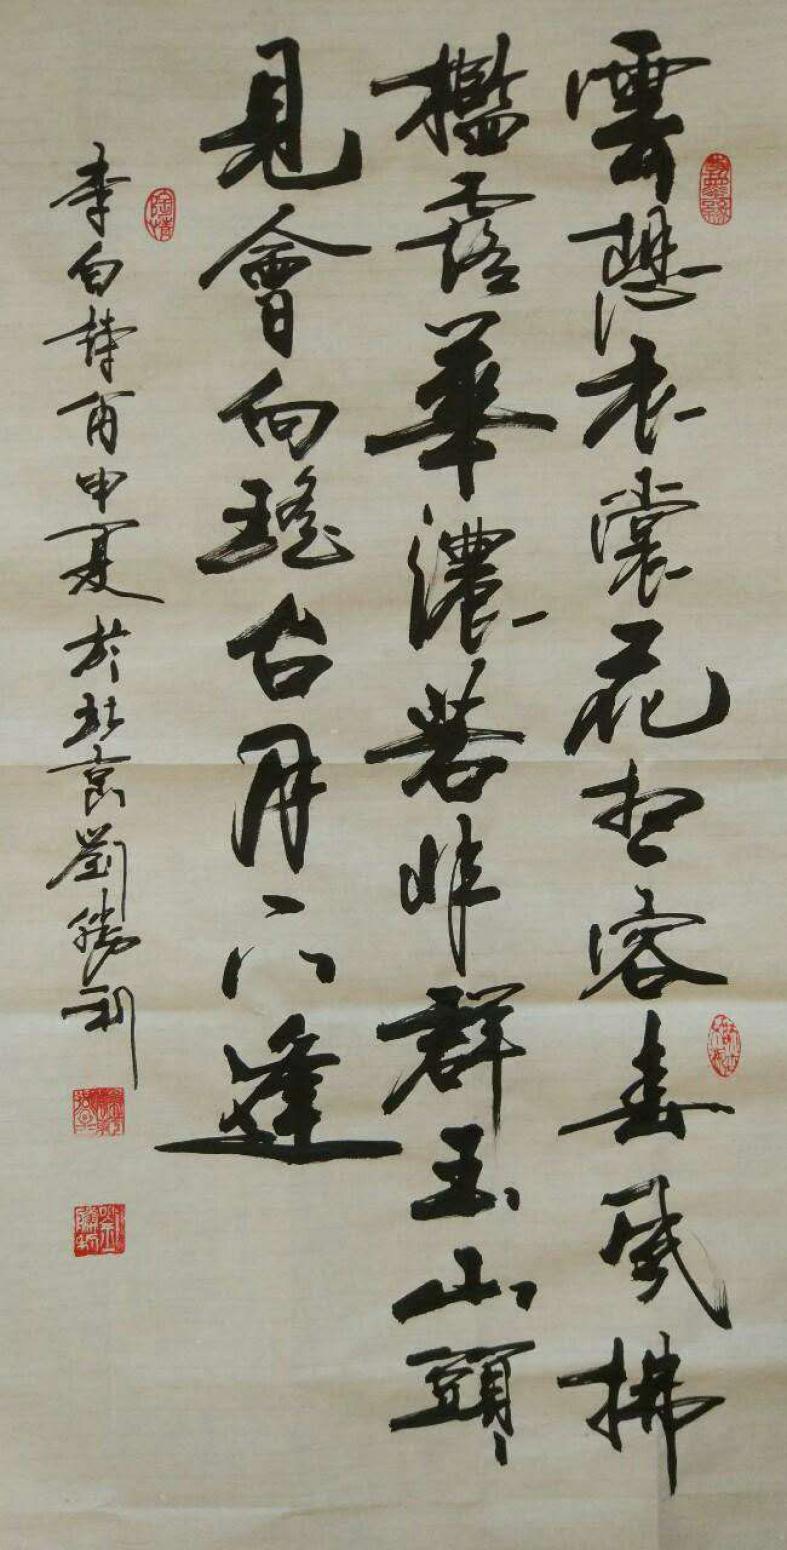 雲想衣裳花想容春風拂
檻露華濃若非群玉山頭
見會向瑤台月下逢
李白詩丙申夏於北京劉勝利